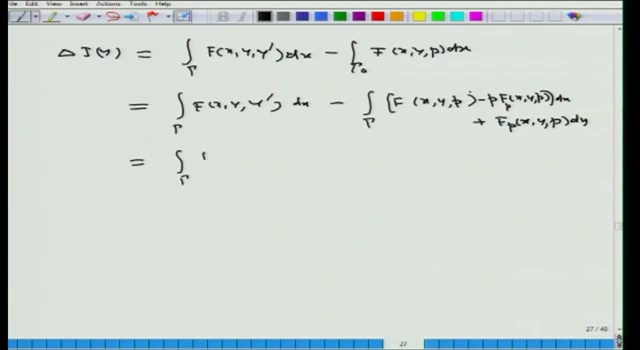 File Edit View Insert Actions Tools Help
Δ J(Y) = ∫_Γ F(x,y,y')dx − ∫_Γ₀ F(x,y,p)dx
= ∫_Γ F(x,y,y') dx − ∫_Γ [F(x,y,p) − pF_p(x,y,p)]dx
+ F_p(x,y,p)dy
= ∫_Γ
27 / 40
27